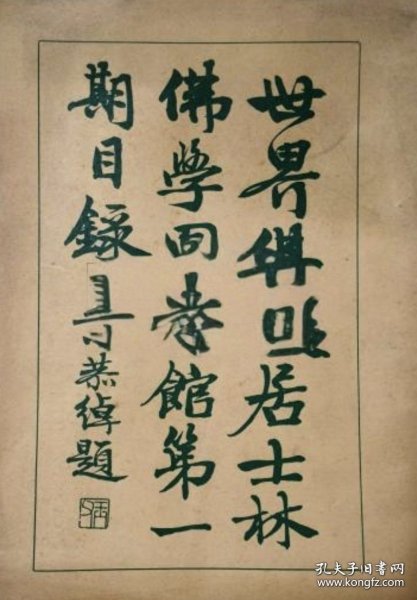 世界居士林
佛學館第一
期目錄恭綽題
孔夫子旧书网
www.kongfz.com